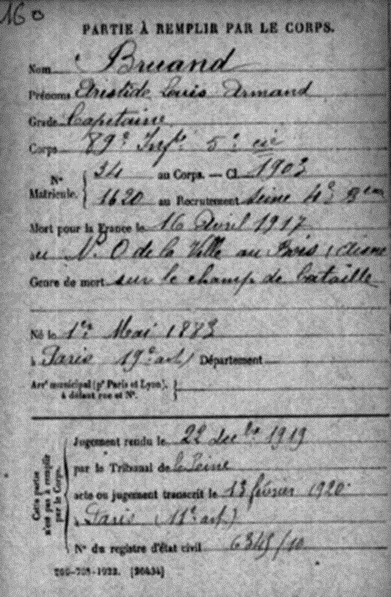 160
PARTIE À REMPLIR PAR LE CORPS.
Nom Bruand
Prénoms Aristide Louis Armand
Grade Capitaine
Corps 89e Infie 5e cie
N° Matricule. { 34 au Corps. — Cl. 1903
1620 au Recrutement Seine 4e Bau
Mort pour la France le 16 Avril 1917
à N. O de la Ville au Bois (Aisne
Genre de mort sur le champ de bataille
Né le 1er Mai 1883
à Paris 19e art) Département
Arrt municipal (pr Paris et Lyon), à défaut rue et N°. }
Cette partie n'est pas à remplir par le Corps.
Jugement rendu le 22 decbre 1919
par le Tribunal de la Seine
acte ou jugement transcrit le 13 février 1920
à Paris (11e art)
N° du registre d'état civil 6345/10
200-708-1922. [26434]